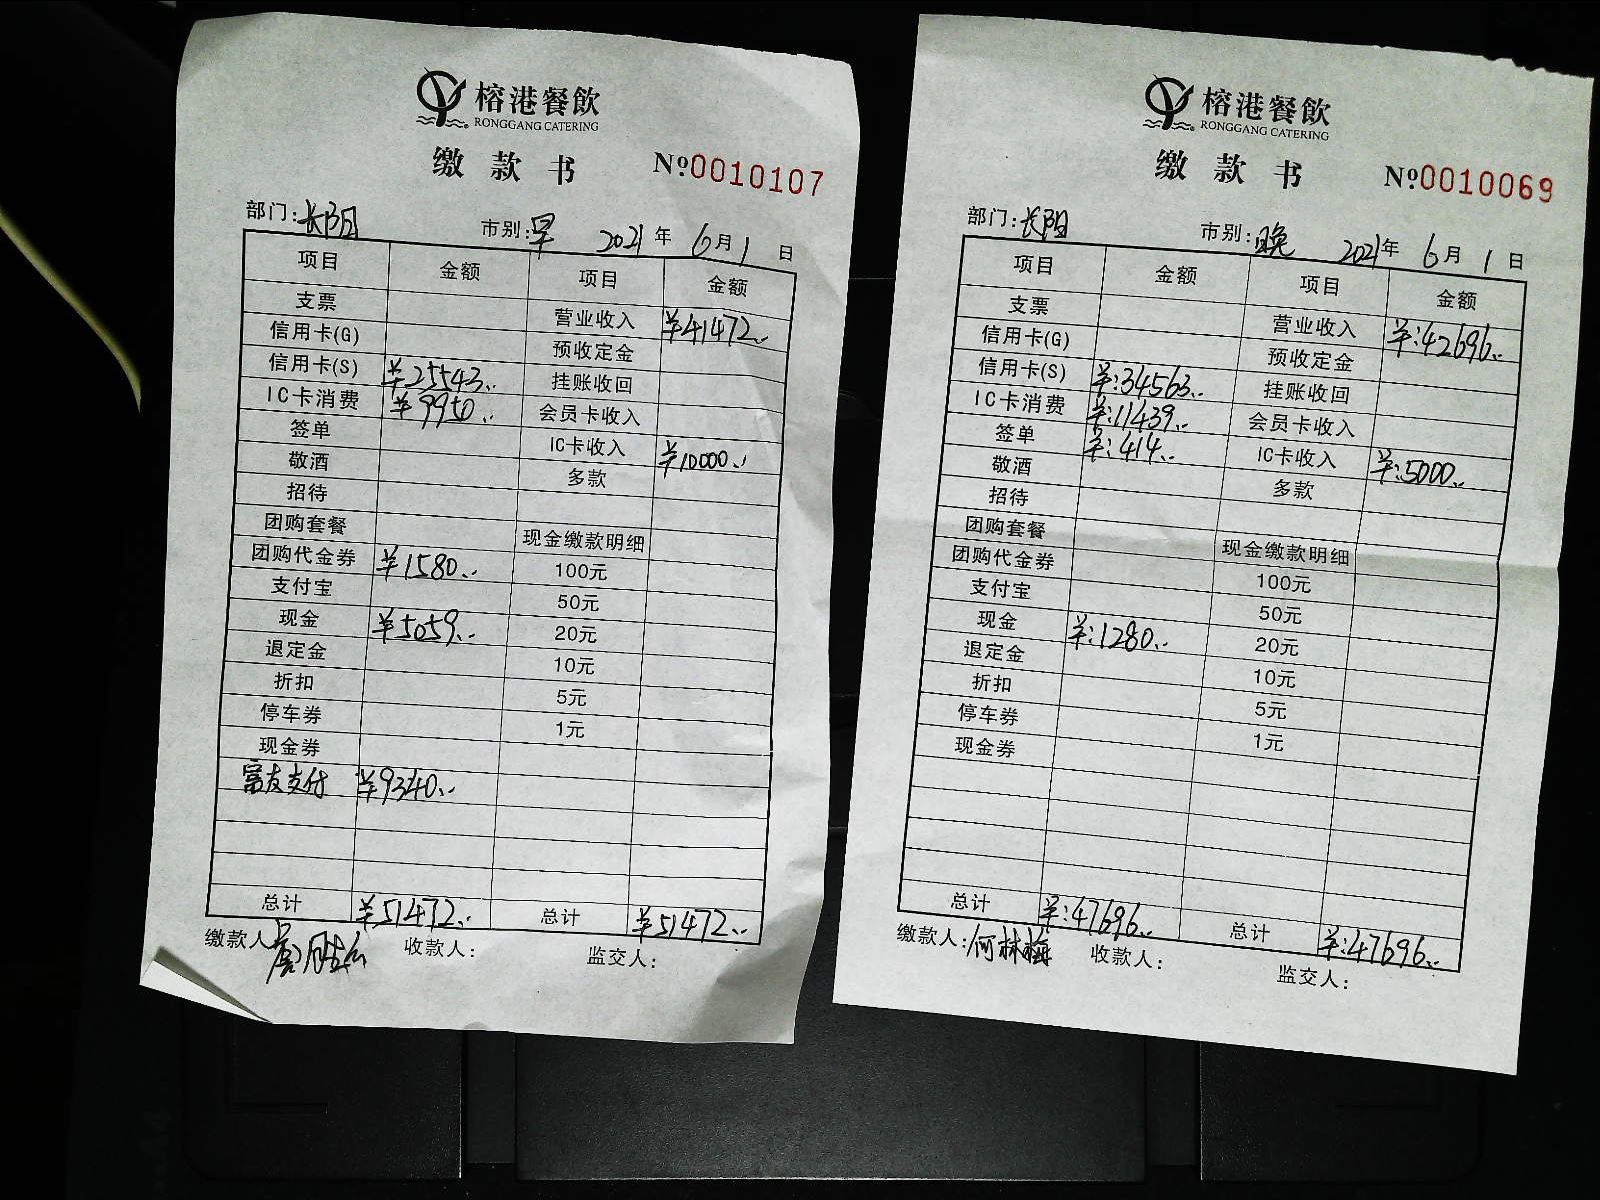 榕港餐飲
RONGGANG CATERING
缴款书 №0010107
部门:长阳 市别:早 2021年6月1日
项目 金额 项目 金额
支票 营业收入 ¥41472..
信用卡(G) 预收定金
信用卡(S) ¥25543.. 挂账收回
IC卡消费 ¥9950.. 会员卡收入
签单 IC卡收入 ¥10000..
敬酒 多款
招待
团购套餐 现金缴款明细
团购代金券 ¥1580.. 100元
支付宝 50元
现金 ¥5059.. 20元
退定金 10元
折扣 5元
停车券 1元
现金券
富友支付 ¥9340..
总计 ¥51472.. 总计 ¥51472..
缴款人: 收款人: 监交人:
榕港餐飲
RONGGANG CATERING
缴款书 №0010069
部门:长阳 市别:晚 2021年6月1日
项目 金额 项目 金额
支票 营业收入 ¥:42696..
信用卡(G) 预收定金
信用卡(S) ¥:34563.. 挂账收回
IC卡消费 ¥:11439.. 会员卡收入
签单 ¥:414.. IC卡收入 ¥:5000..
敬酒 多款
招待
团购套餐 现金缴款明细
团购代金券 100元
支付宝 50元
现金 ¥:1280.. 20元
退定金 10元
折扣 5元
停车券 1元
现金券
总计 ¥:47696.. 总计 ¥:47696..
缴款人:何林梅 收款人: 监交人: